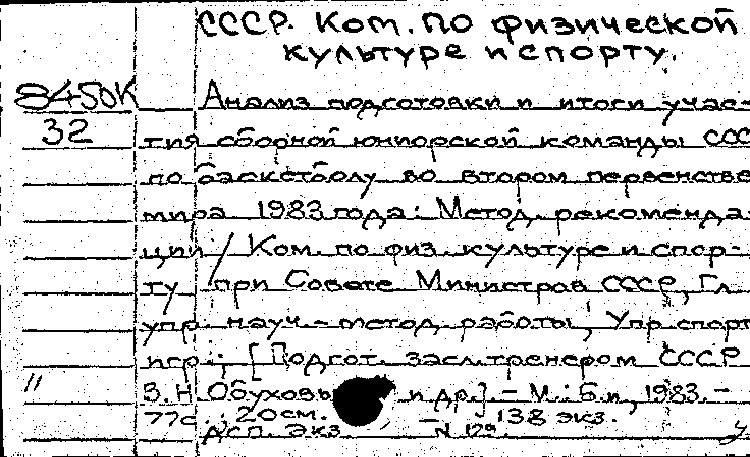 СССР. Ком. по физической
культуре и спорту.
8450К Анализ подготовки и итоги учас-
32 тия сборной юниорской команды ССС
по баскетболу во втором первенстве
мира 1983 года: Метод. рекоменда-
ции / Ком. по физ. культуре и спор-
ту при Совете Министров СССР, Гл.
упр. науч.-метод. работы, Упр. спорт.
игр.; [Подгот. засл. тренером СССР
11 В. Н. Обуховы и др.]. - М.: Б. и., 1983. -
77с.; 20 см. 138 экз.
ДСП. Экз. N 129.